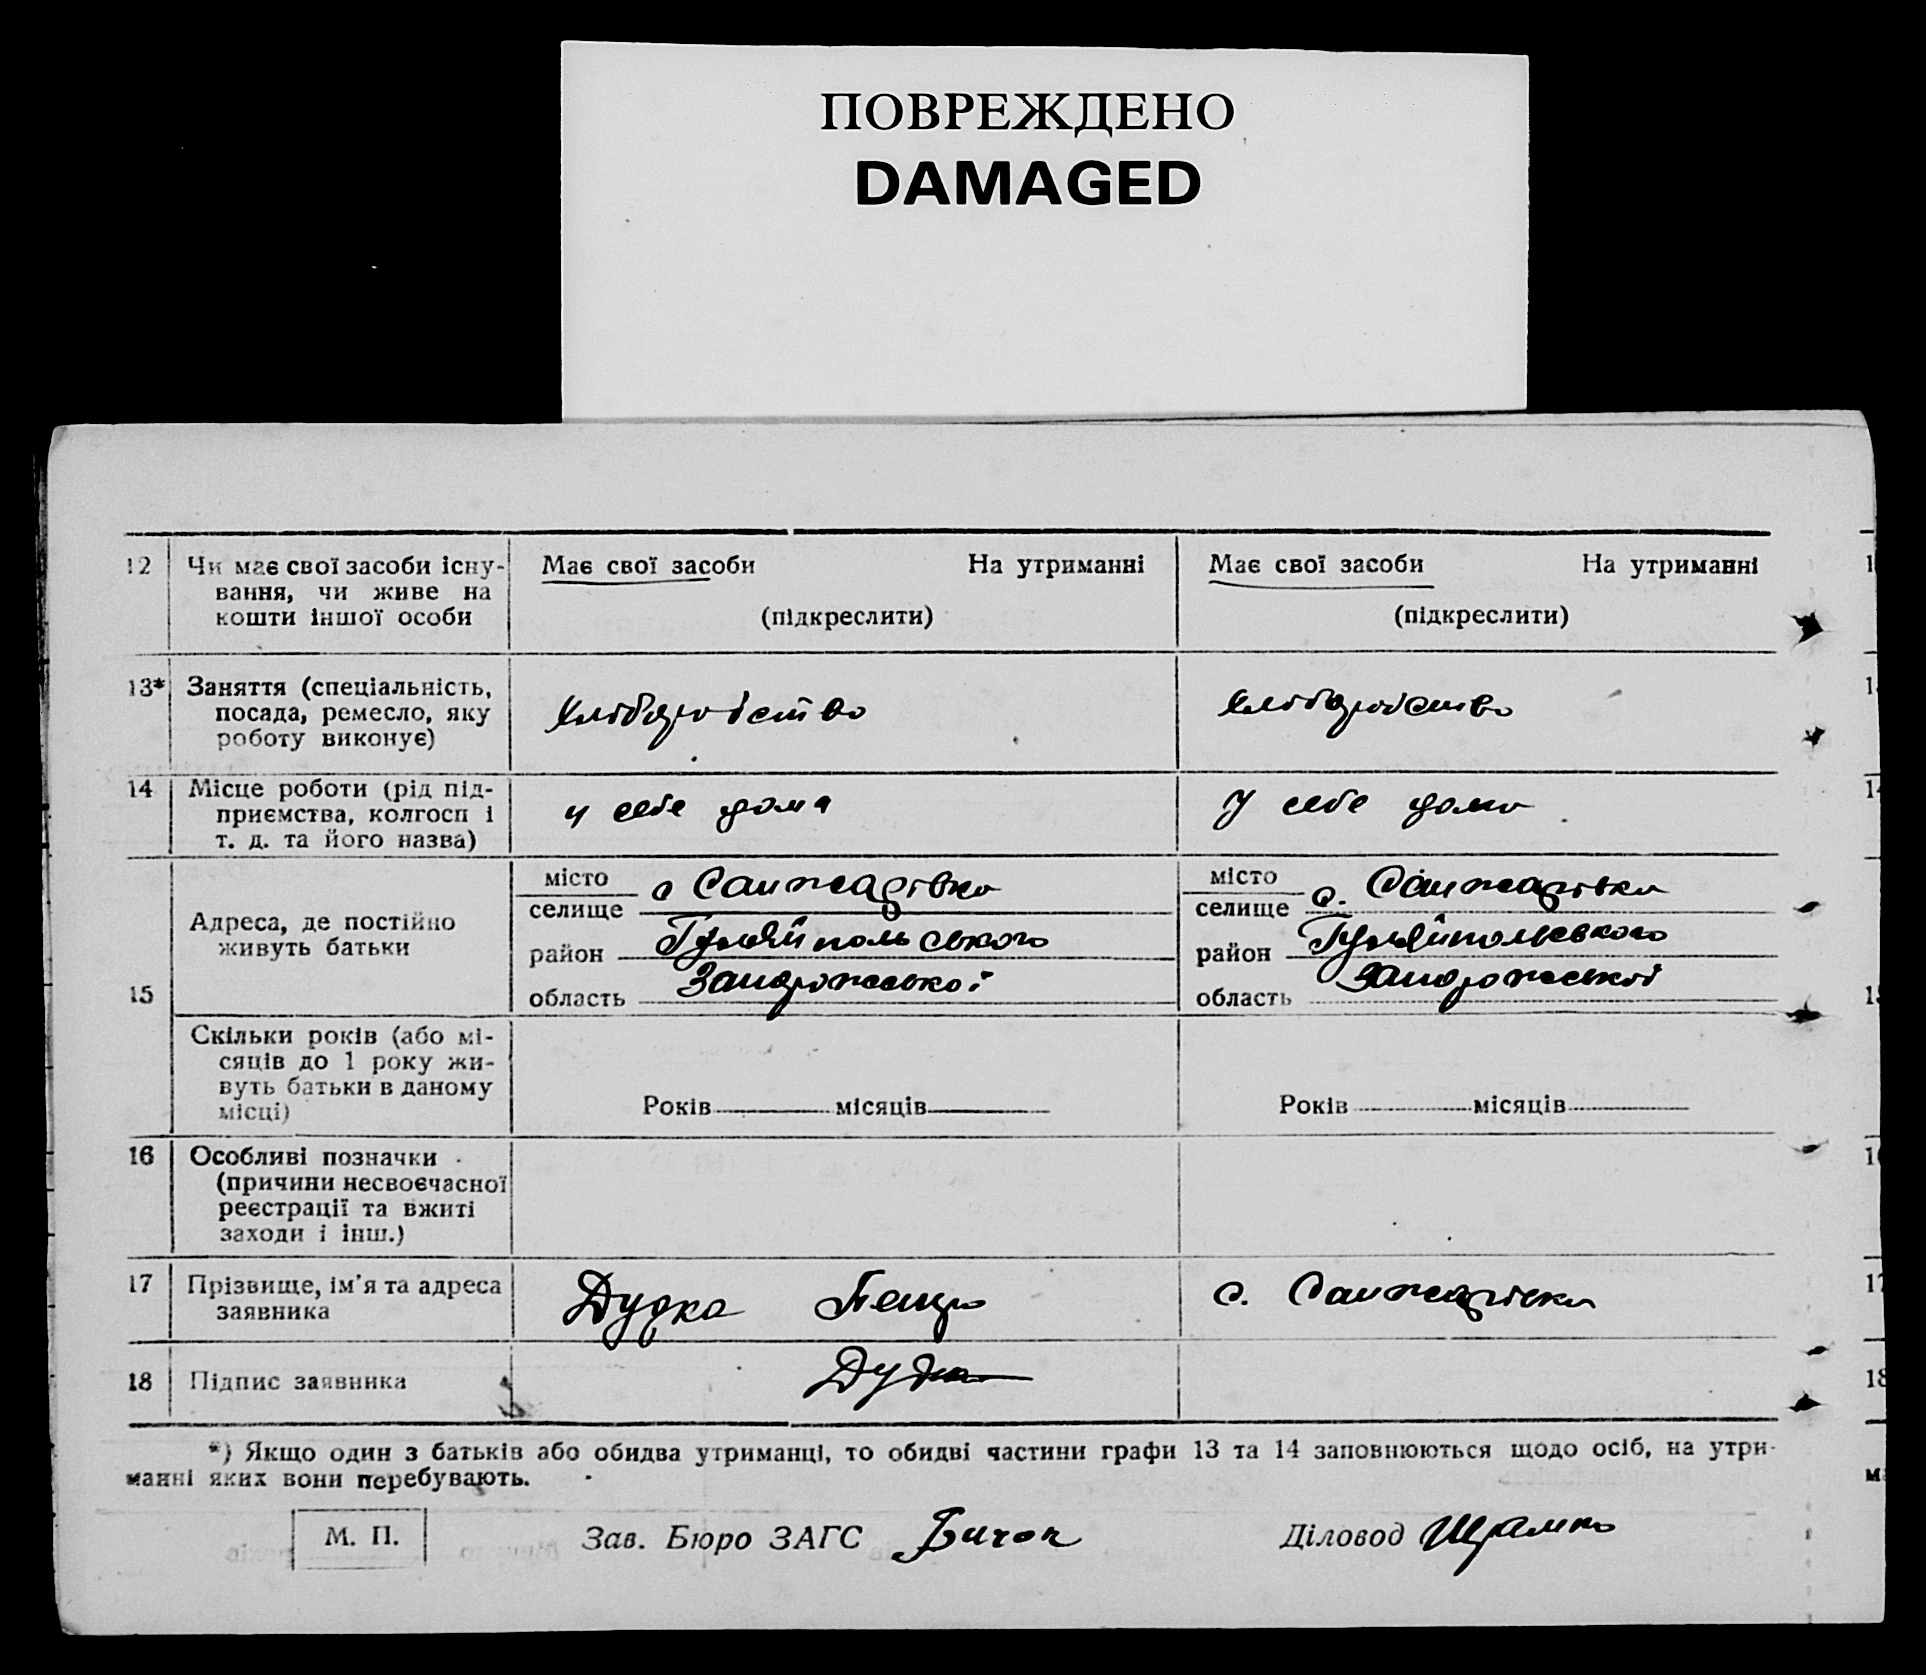 ПОВРЕЖДЕНО
DAMAGED
12 Чи має свої засоби існу-
вання, чи живе на
кошти іншої особи
Має свої засоби На утриманні
(підкреслити)
Має свої засоби На утриманні
(підкреслити)
13* Заняття (спеціальність,
посада, ремесло, яку
роботу виконує)
хліборобство
хліборобство
14 Місце роботи (рід під-
приємства, колгосп і
т. д. та його назва)
у себе дома
у себе дома
15
Адреса, де постійно
живуть батьки
місто
селище с Санжарівка
район Гуляйпольського
область Запорожської
місто
селище с. Санжарівка
район Гуляйпольського
область Запорожської
Скільки років (або мі-
сяців до 1 року жи-
вуть батьки в даному
місці)
Років місяців
Років місяців
16 Особливі позначки
(причини несвоєчасної
реєстрації та вжиті
заходи і інш.)
17 Прізвище, ім'я та адреса
заявника
Дудка Петро
с. Санжарівка
18 Підпис заявника
Дудка
*) Якщо один з батьків або обидва утриманці, то обидві частини графи 13 та 14 заповнюються щодо осіб, на утри-
манні яких вони перебувають.
М. П. Зав. Бюро ЗАГС Діловод
1
14
17
18